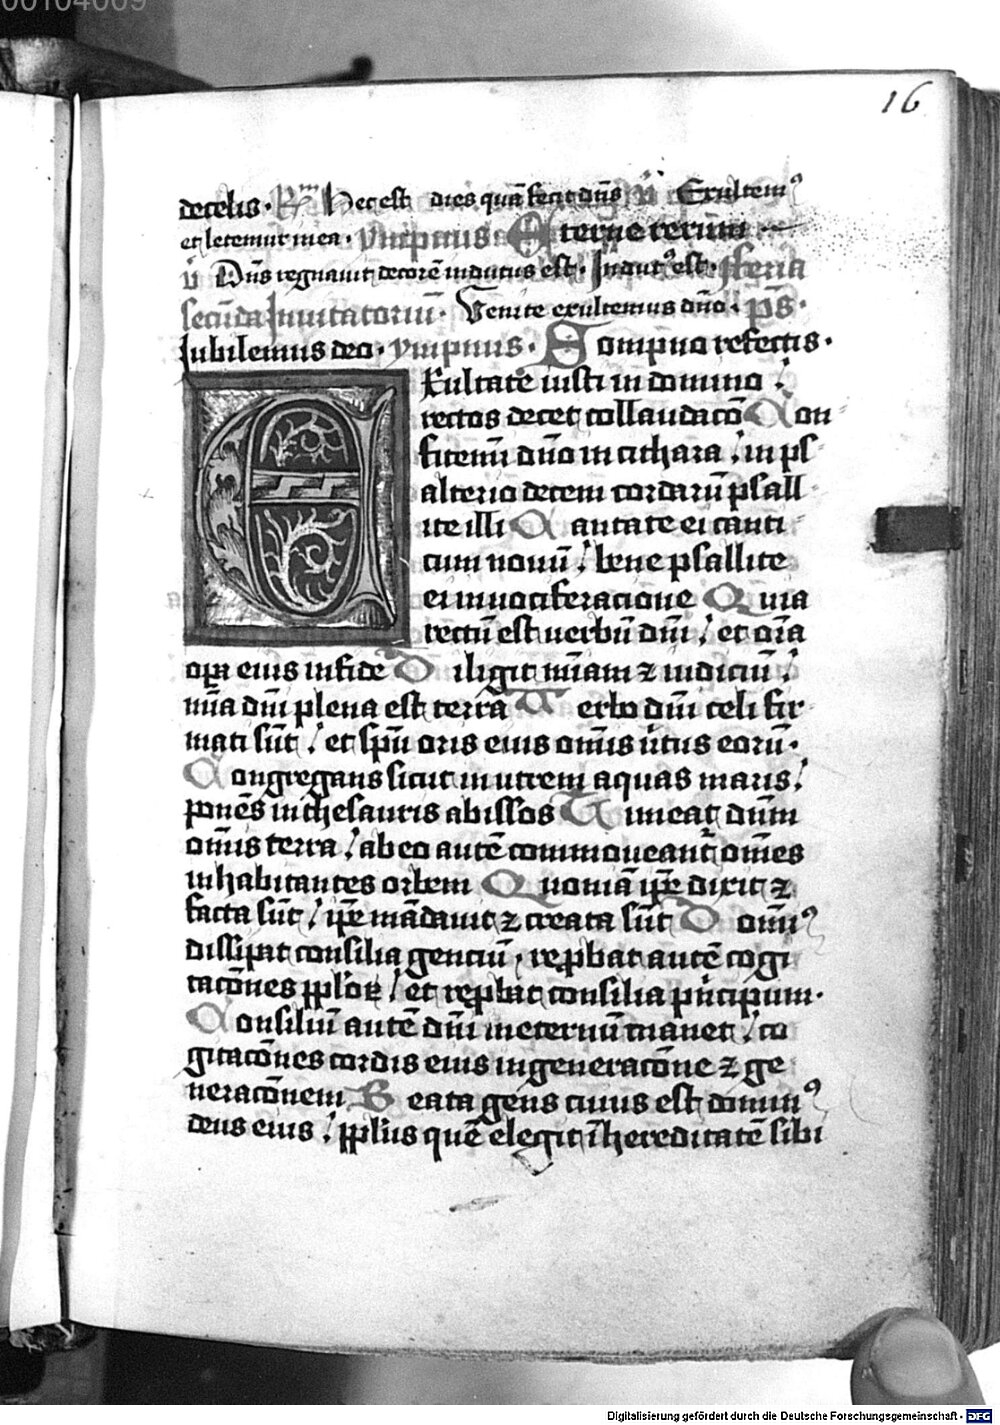 00104009
16
decelis. R̄m Hec est dies quā fecit dn̄s v̄ Exultemꝰ
et letemur in ea. ympnus Eterne rerum
v̄ Dn̄s regnauit decorē indutus est. Indutꝰ est. Feria
secūda Inuitatoriū. Venite exultemus dn̄o. ps̄.
Iubilemus deo. ympnus. Sompno refectis.
Exultate iusti in domino
rectos decet collaudacō Con
fitemī dn̄o in cithara / in ps
alterio decem cordarū psall
ite illi Cantate ei canti
cum nouū / bene psallite
ei in uociferacione Quia
rectū est uerbū dn̄i / et om̄a
oꝑa eius in fide Diligit mīam ⁊ iudiciū /
mīa dn̄i plena est terra Verbo dn̄i celi fir
mati sūt / et spū oris eius om̄is ũtus eorū.
Congregans sicut in utrem aquas maris /
ponēs in thesauris abissos Timeat dn̄m
om̄is terra / ab eo autē commoueant̄ om̄es
inhabitantes orbem Quoniā ip̄e dixit ⁊
facta sūt / ip̄e mādauit ⁊ creata sūt Domīꝰ
dissipat consilia genciū / reꝓbat autē cogi
tacōnes ppl̄oꝝ / et reꝓbat consilia pͥncipum.
Consiliū autē dn̄i in eternum manet / co
gitacōnes cordis eius in generacōne ⁊ ge
neracōnem Beata gens cuius est dominꝰ
deus eius / ppl̄us quē elegit ī hereditatē sibi
Digitalisierung gefördert durch die Deutsche Forschungsgemeinschaft - DFG